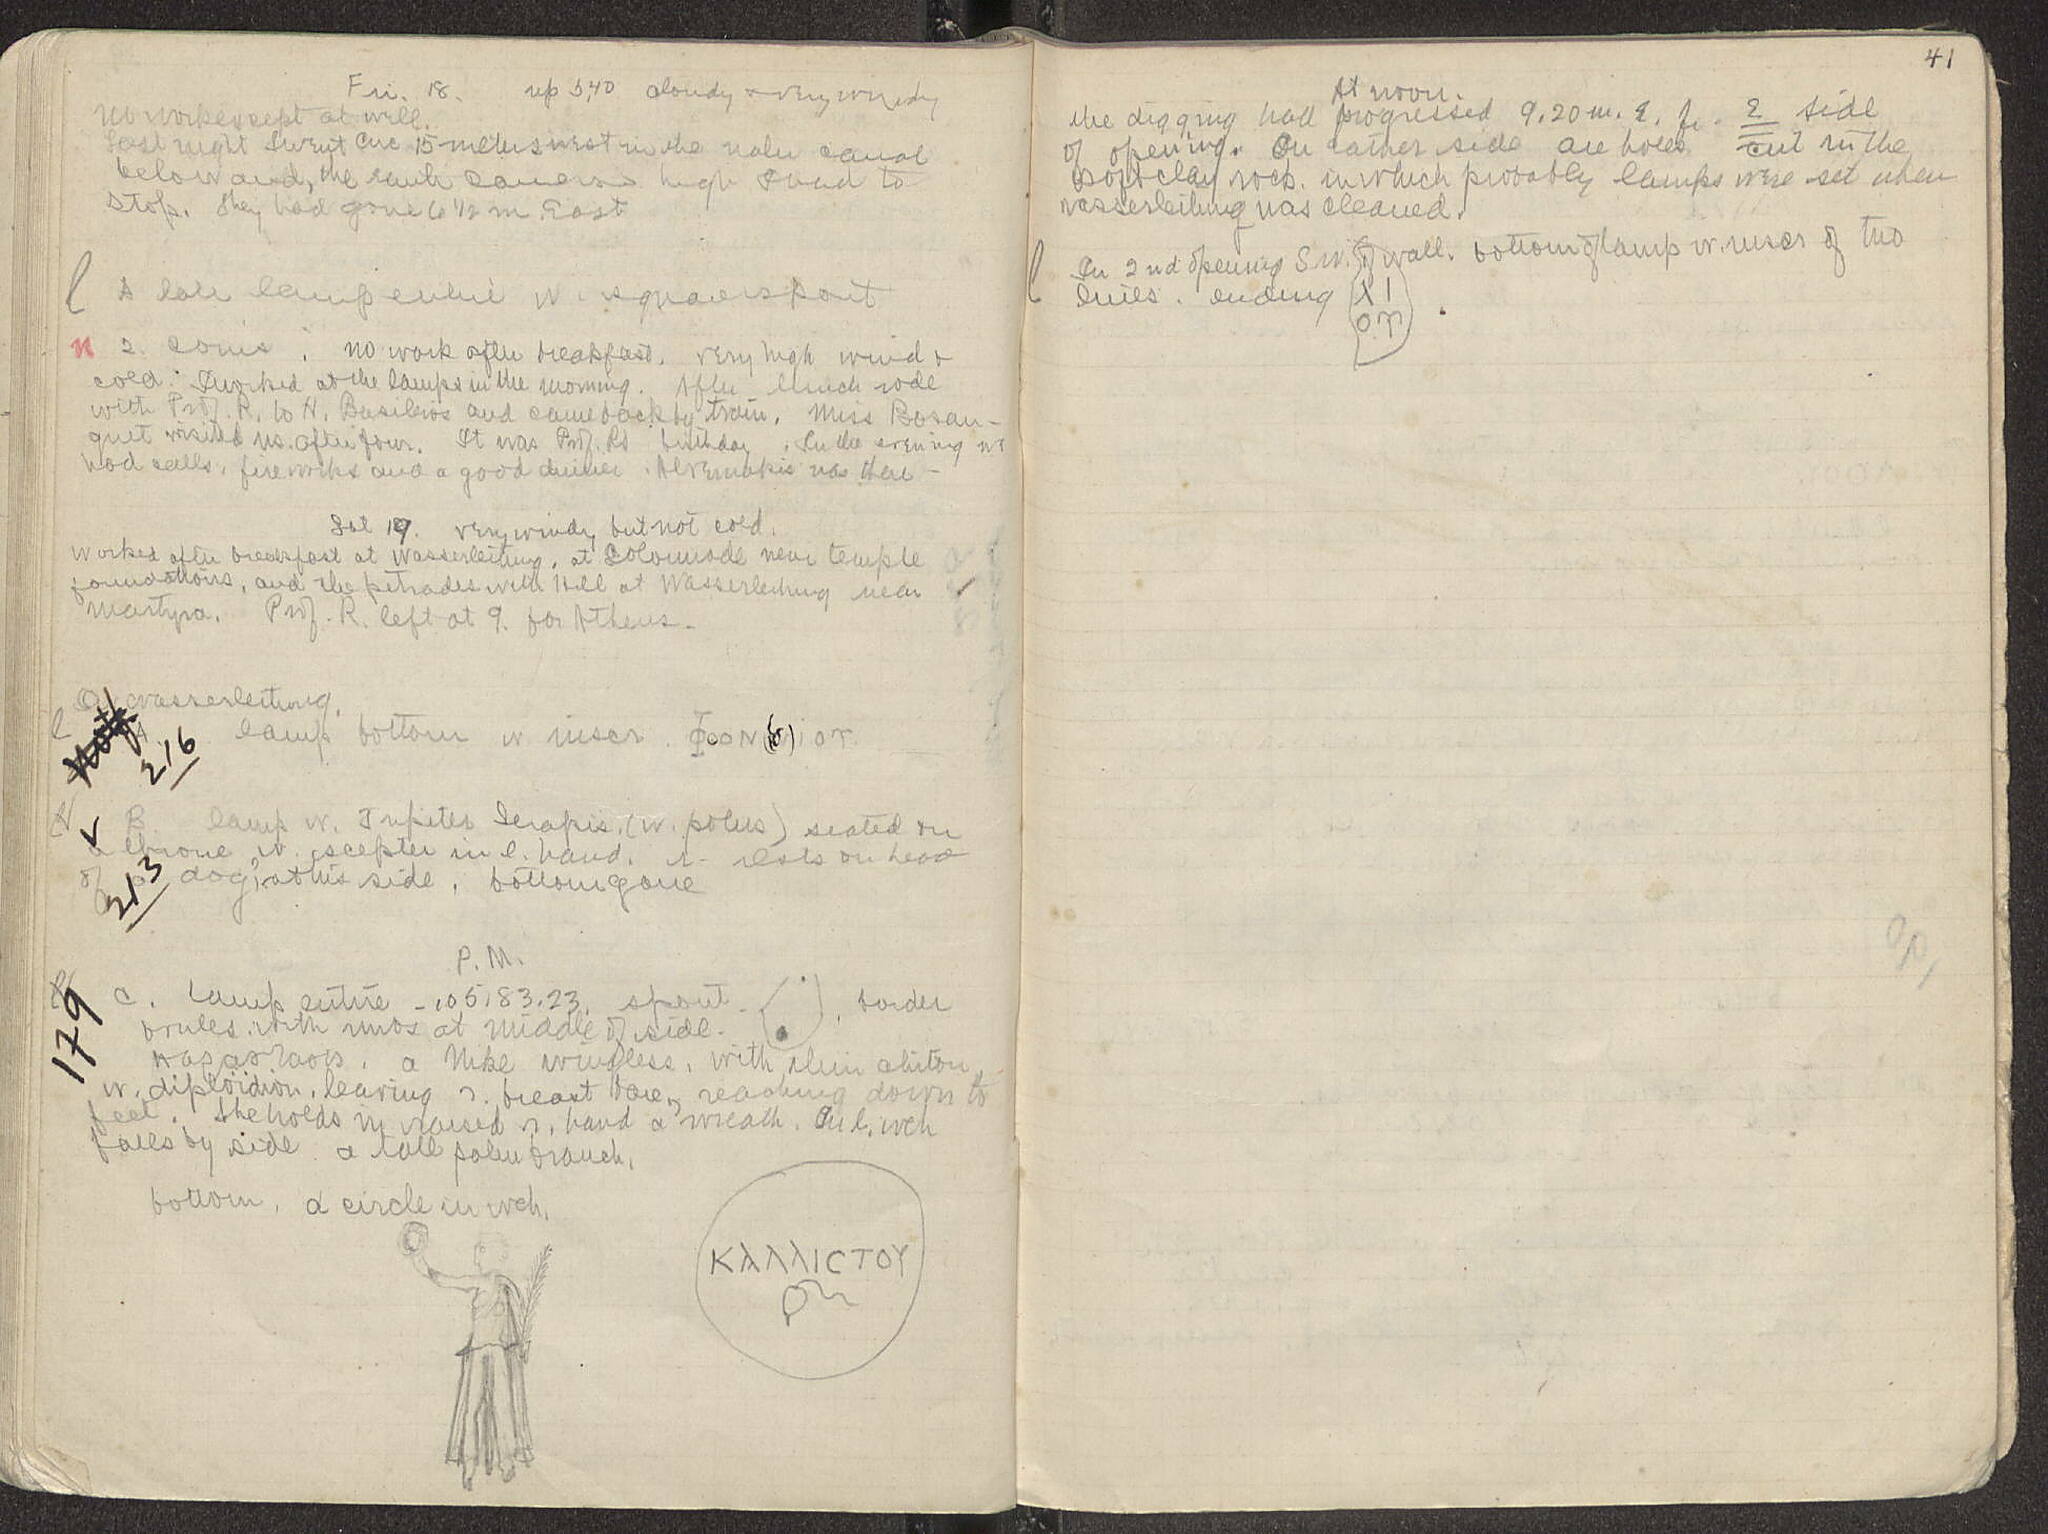 Fri. 18. up 5,40 cloudy & very windy
No work except at well.
Last night I went in 15 meters west in the water canal
below and, the earth caved high I had to
stop. They had gone 6 1/2 m. East
l A late lamp entire w. square spout
n 2. coins. No work after breakfast. Very high wind &
cold. I worked at the lamps in the morning. After lunch rode
with Prof. R. to H. Basilios and came back by train. Miss Bosan-
quet visited us after four. It was Prof. R's birthday. In the evening we
had calls, fireworks and a good dinner. was there -
Sat 19. very windy but not cold.
Worked after breakfast at Wasserleitung, at Colonnade near temple
foundations, and the petrades with Hill at Wasserleitung near
Martyra. Prof. R. left at 9. for Athens.
Wasserleitung.
l A lamp bottom w inscr.
216
B lamp w. Jupiter Serapis, (w. polus) seated on
a throne, w. scepter in l. hand. r. rests on head
of a dog, at his side. bottom gone
213
P.M.
179
C. Lamp entire - .105.83.23. spout. border
ovules with knobs at middle of side.
a Nike wingless, with thin chiton
w. diploidion, leaving r. breast bare, reaching down to
feet. She holds in raised r. hand a wreath. In l. wch
falls by side a tall palm branch.
bottom, a circle in wch.
ΚΑΛΛΙCΤΟΥ
41
At noon.
the digging had progressed 9.20 m. E. fr. E side
of opening. On either side are holes cut in the
soft clay rock in which probably lamps were set when
wasserleitung was cleaned.
l In 2nd opening S.W. of wall. bottom of lamp w. inscr of two
lines. ending ΛΙ